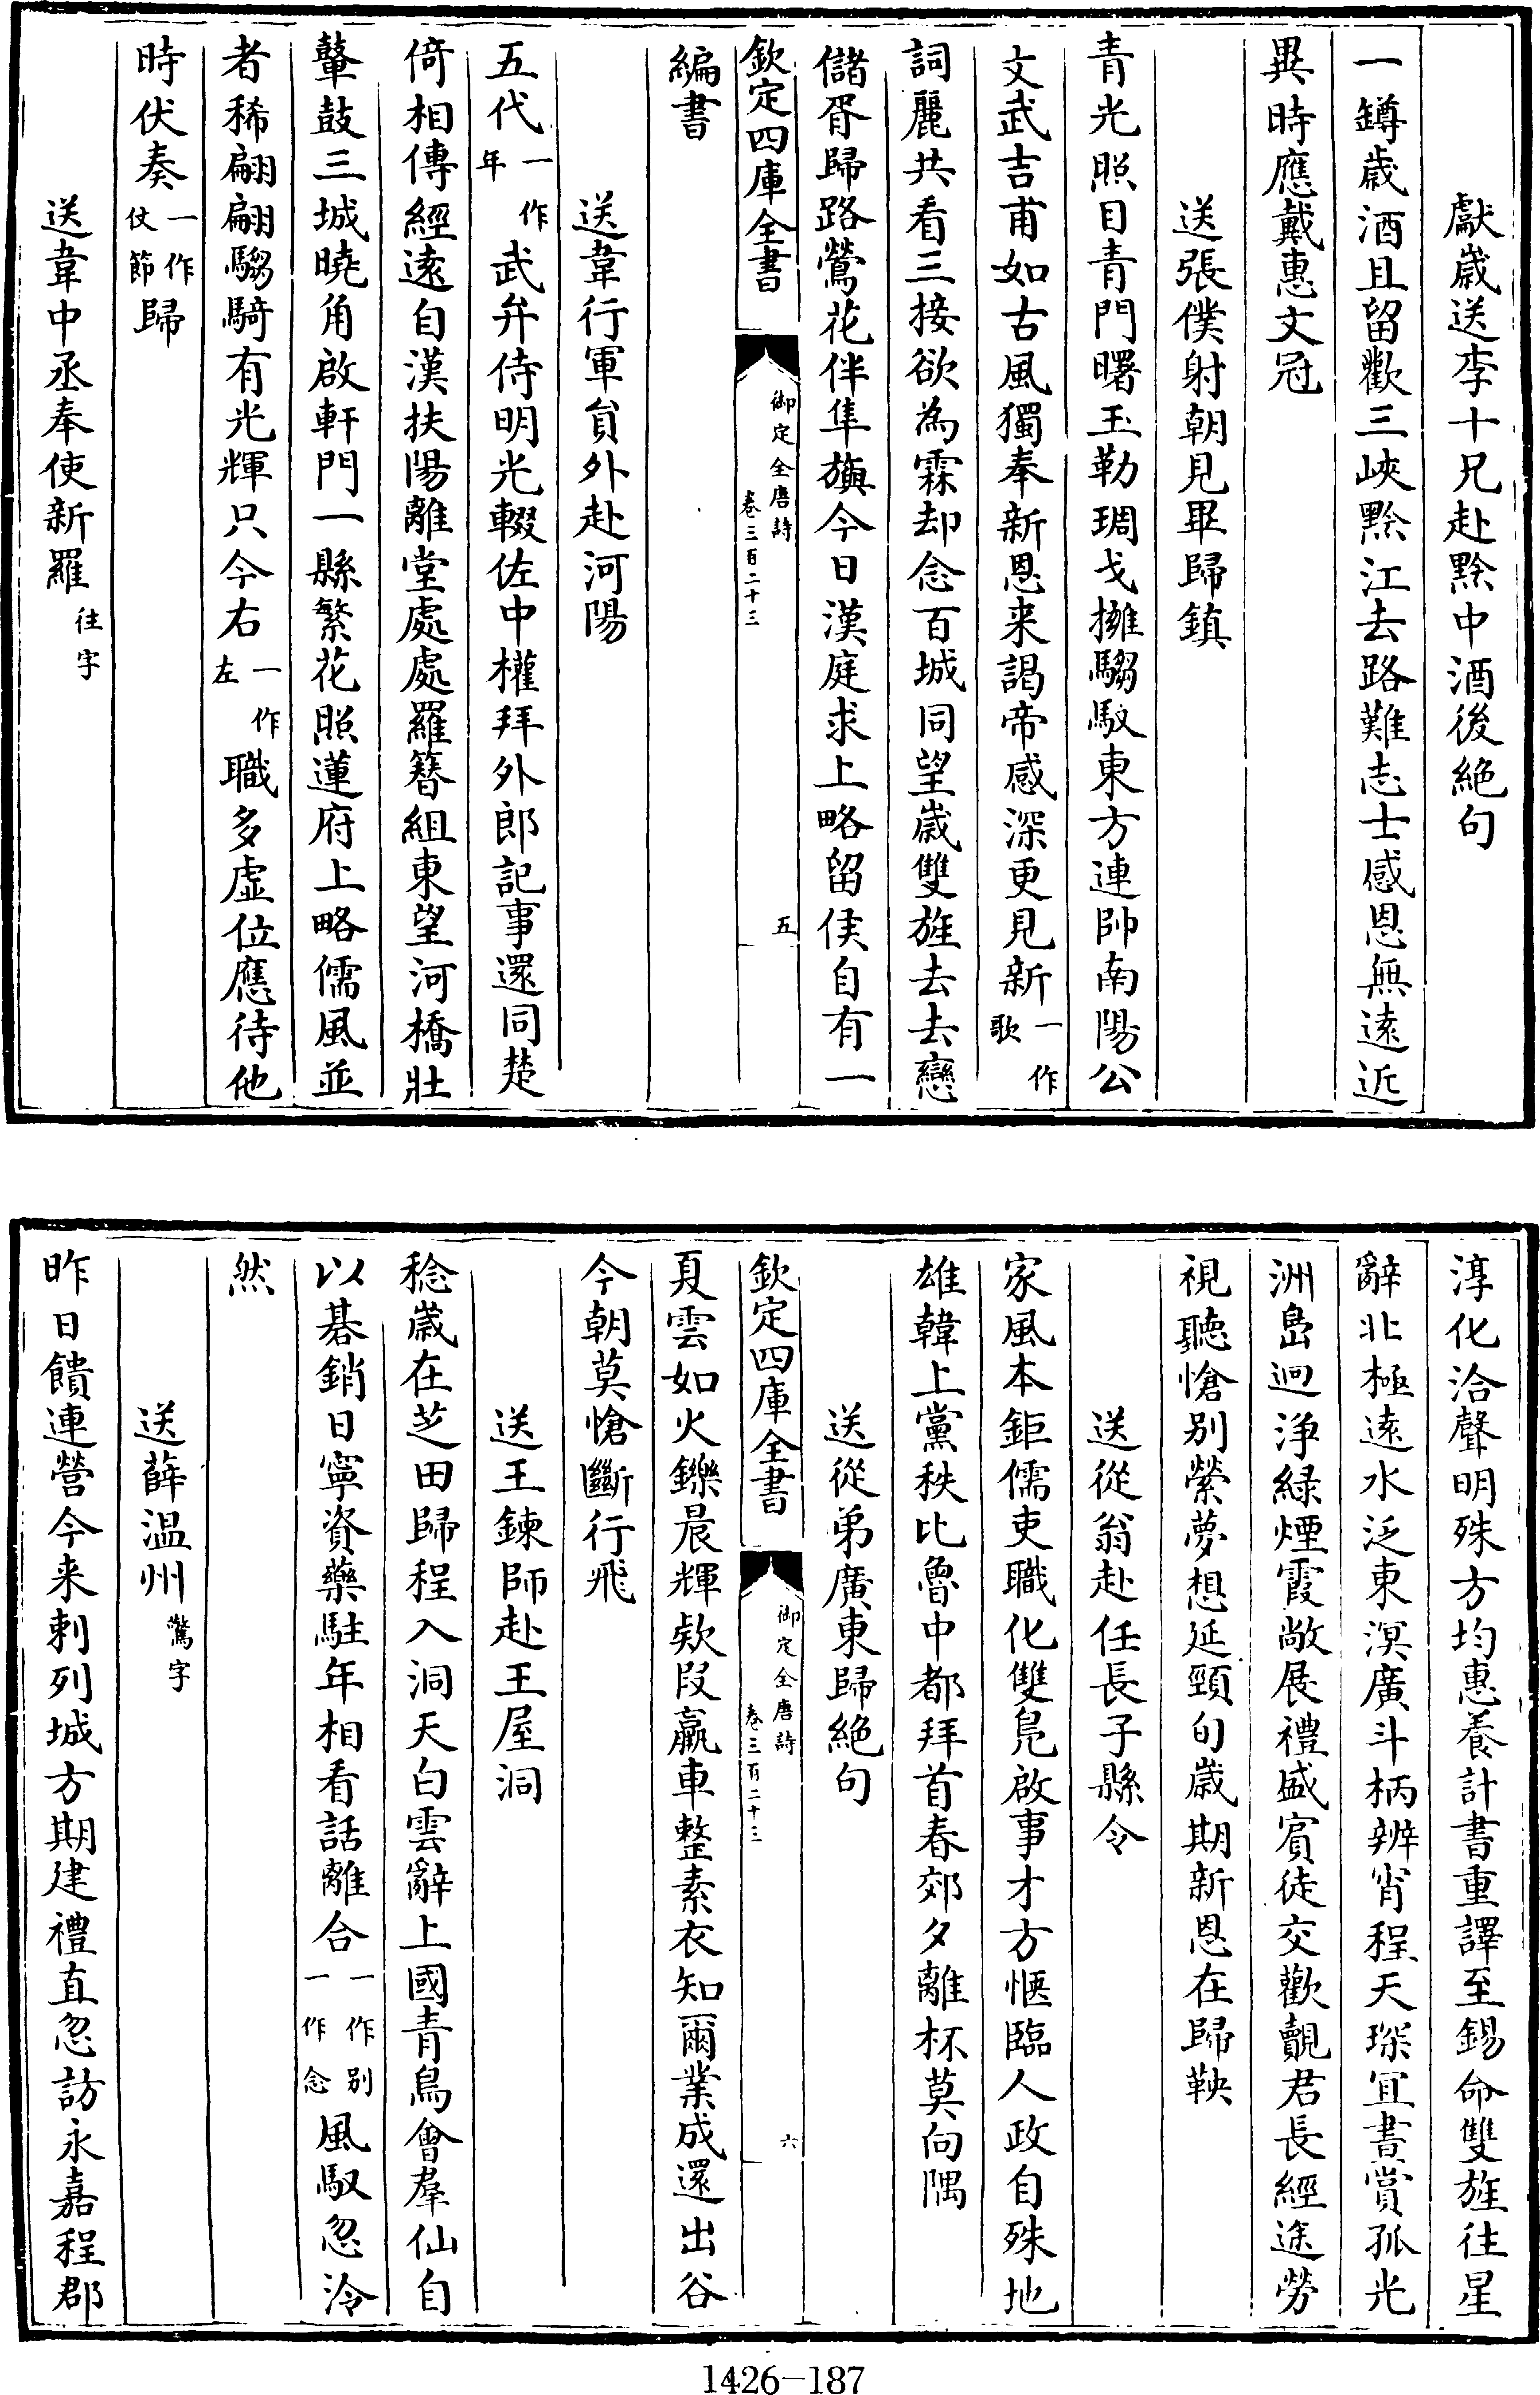 獻歳送李十兄赴黔中酒後絶句
一鐏歳酒且留歡三峽黔江去路難志士感恩無遠近
異時應戴惠文冠
送張僕射朝見畢歸鎮
青光照目青門曙玉勒琱戈擁騶馭東方連帥南陽公
文武吉甫如古風獨奉新恩来謁帝感深更見新一作歌
詞麗共看三接欲為霖却念百城同望歳雙旌去去戀
儲胥歸路鶯花伴隼旟今日漢庭求上略留侯自有一
欽定四庫全書
御定全唐詩
卷三百二十三
五
編書
送韋行軍員外赴河陽
五代一作年武弁侍明光輟佐中權拜外郎記事還同楚
倚相傳經遠自漢扶陽離堂處處羅簪組東望河橋壯
鼙鼓三城曉角啟軒門一縣繁花照蓮府上略儒風並
者稀翩翩騶騎有光輝只今右一作左職多虛位應待他
時伏奏一作仗節歸
送韋中丞奉使新羅往字
淳化洽聲明殊方均惠養計書重譯至錫命雙旌往星
辭北極遠水泛東溟廣斗柄辨宵程天琛宜晝賞孤光
洲島迥淨緑煙霞敞展禮盛賓徒交歡覿君長經途勞
視聽愴别縈夢想延頸旬歳期新恩在歸鞅
送從翁赴任長子縣令
家風本鉅儒吏職化雙鳧啟事才方愜臨人政自殊地
雄韓上黨秩比魯中都拜首春郊夕離杯莫向隅
送從弟廣東歸絶句
夏雲如火鑠晨輝欵叚羸車整素衣知爾業成還出谷
欽定四庫全書
御定全唐詩
卷三百二十三
六
今朝莫愴斷行飛
送王鍊師赴王屋洞
稔歳在芝田歸程入洞天白雲辭上國青鳥會羣仙自
以棊銷日寧資藥駐年相看話離合一作别一作念風馭忽泠
然
送薛温州驚字
昨日饋連營今来剌列城方期建禮直忽訪永嘉程郡
1426-187